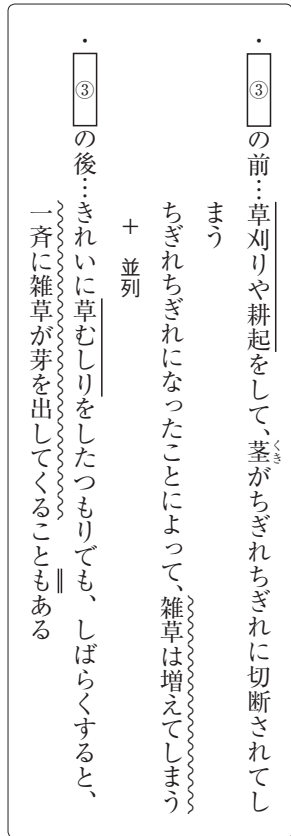 ・③の前…草刈りや耕起をして、茎がちぎれちぎれに切断されてし
くき
まう
ちぎれちぎれになったことによって、雑草は増えてしまう
＋ 並列
・③の後…きれいに草むしりをしたつもりでも、しばらくすると、
一斉に雑草が芽を出してくることもある